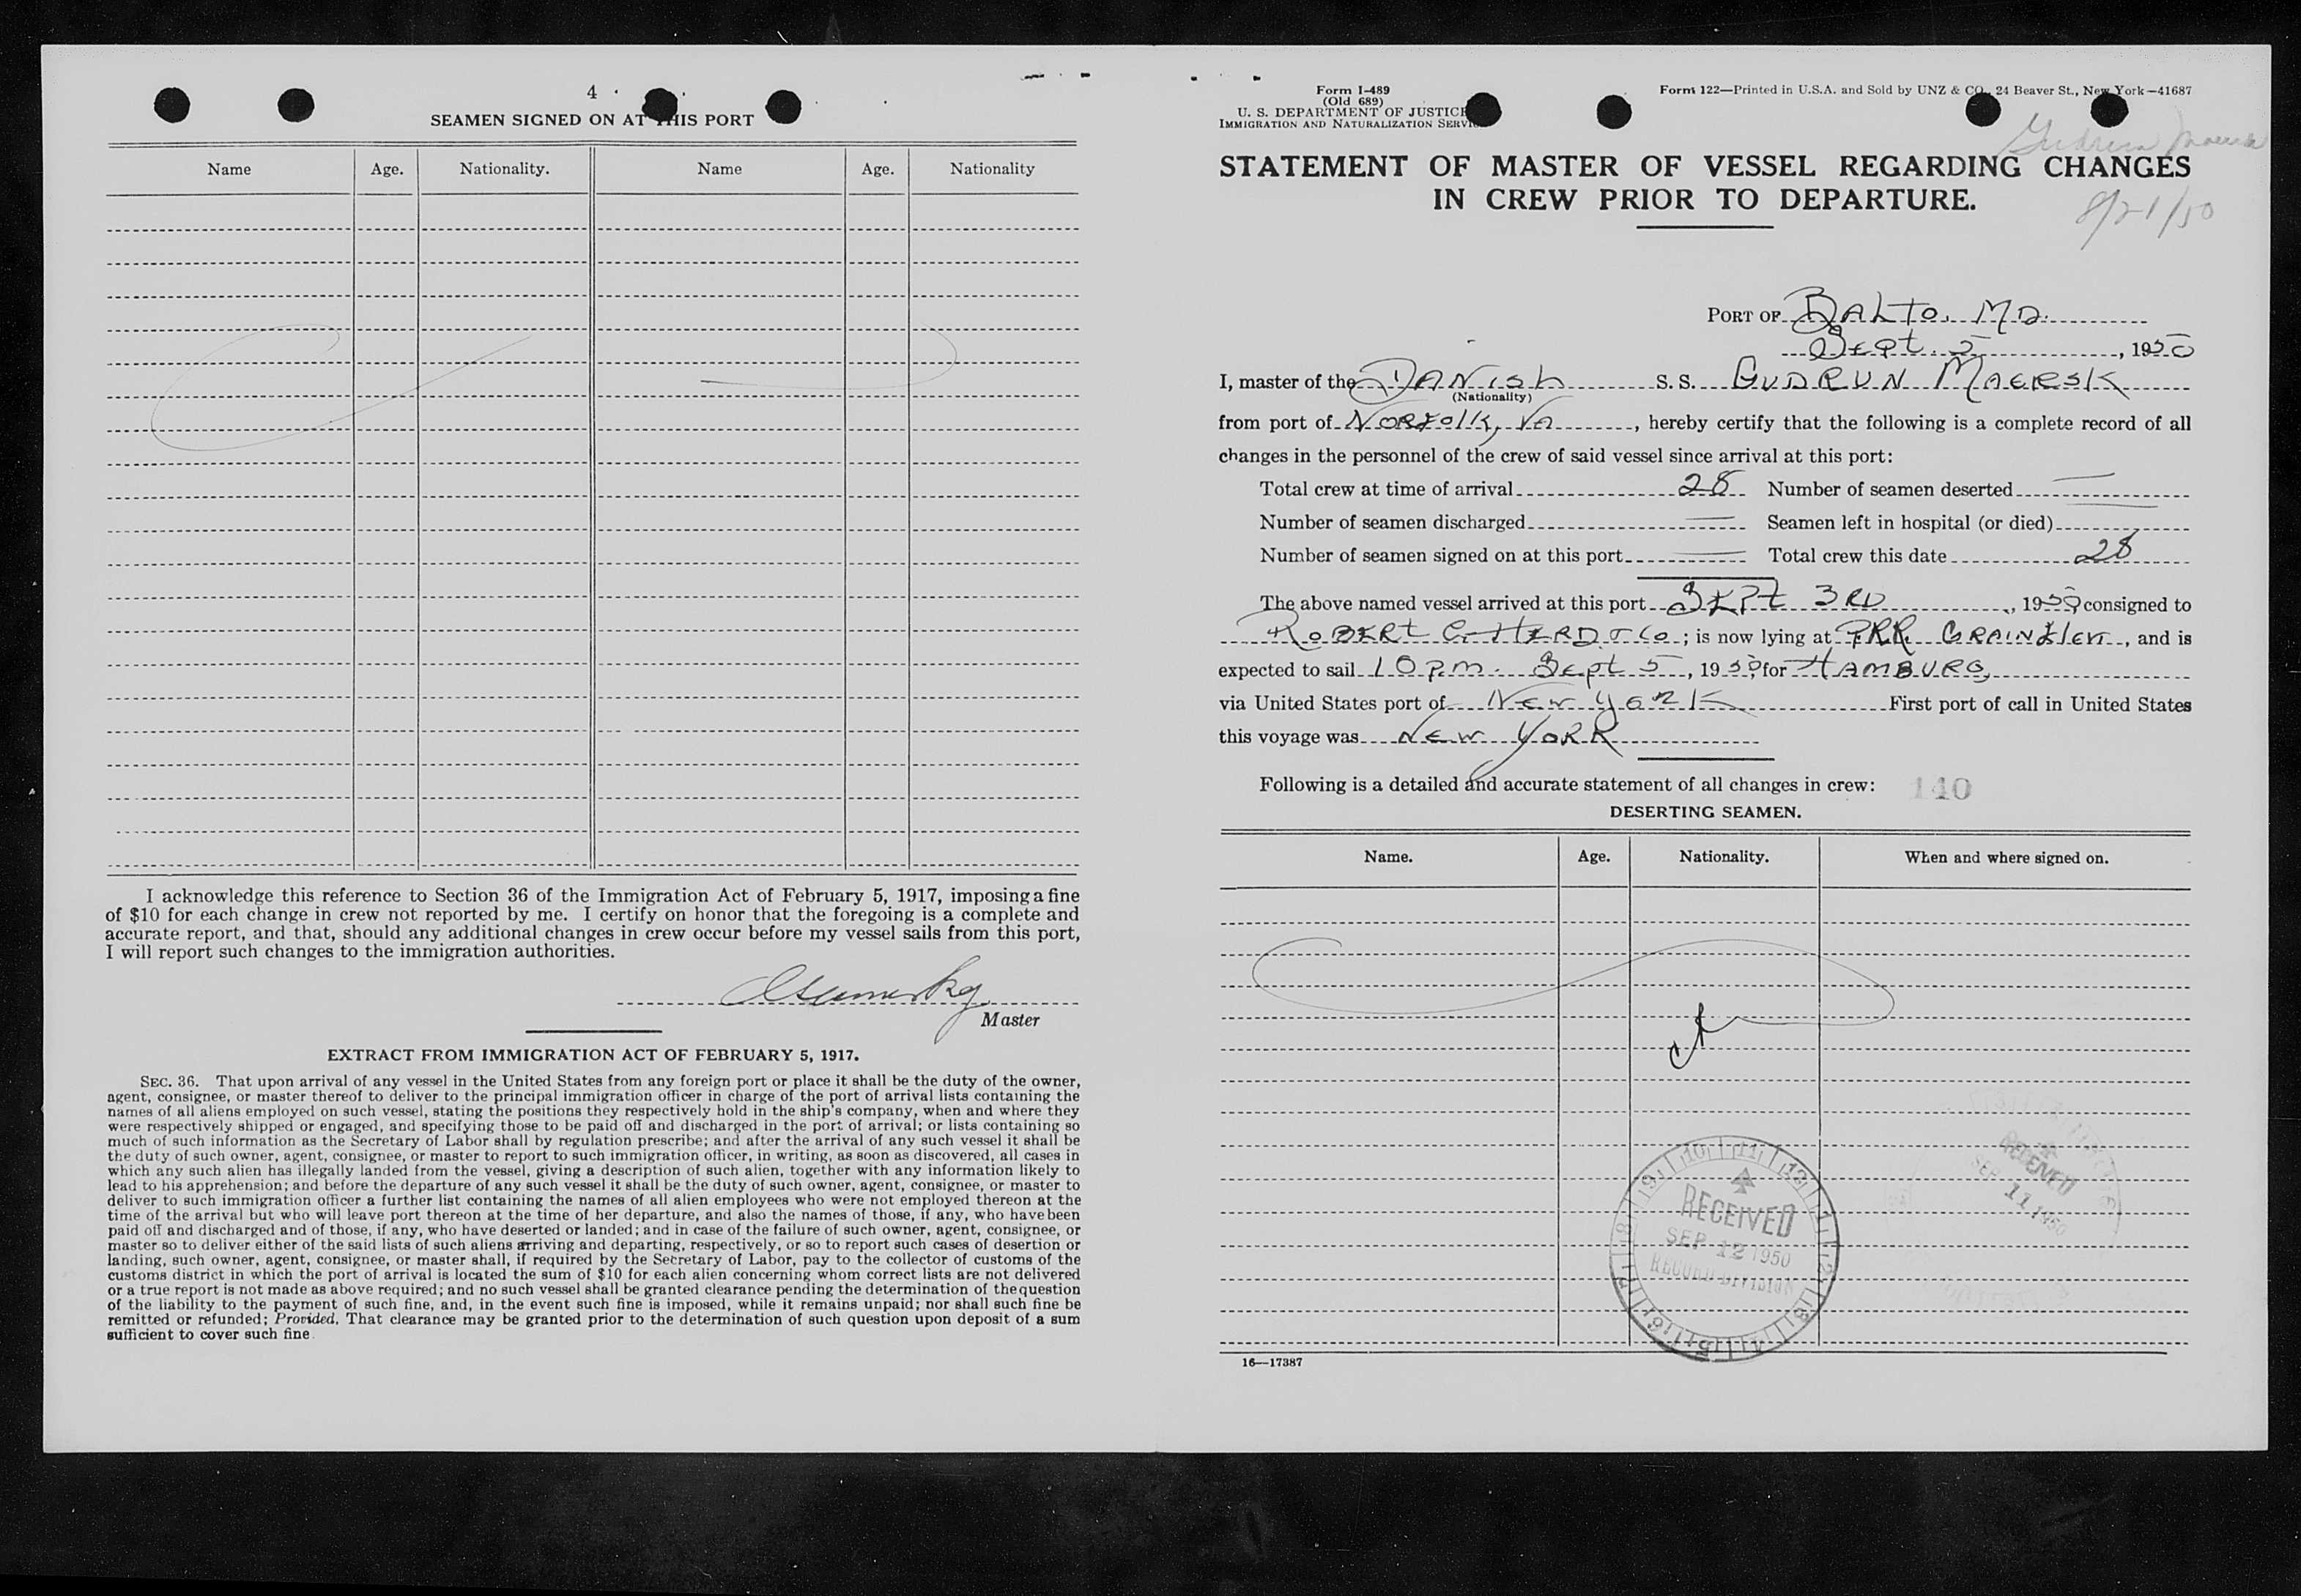 4
SEAMEN SIGNED ON AT THIS PORT
Name Age. Nationality. Name Age. Nationality
I acknowledge this reference to Section 36 of the Immigration Act of February 5, 1917, imposing a fine
of $10 for each change in crew not reported by me. I certify on honor that the foregoing is a complete and
accurate report, and that, should any additional changes in crew occur before my vessel sails from this port,
I will report such changes to the immigration authorities.
Master
EXTRACT FROM IMMIGRATION ACT OF FEBRUARY 5, 1917.
SEC. 36. That upon arrival of any vessel in the United States from any foreign port or place it shall be the duty of the owner,
agent, consignee, or master thereof to deliver to the principal immigration officer in charge of the port of arrival lists containing the
names of all aliens employed on such vessel, stating the positions they respectively hold in the ship's company, when and where they
were respectively shipped or engaged, and specifying those to be paid off and discharged in the port of arrival; or lists containing so
much of such information as the Secretary of Labor shall by regulation prescribe; and after the arrival of any such vessel it shall be
the duty of such owner, agent, consignee, or master to report to such immigration officer, in writing, as soon as discovered, all cases in
which any such alien has illegally landed from the vessel, giving a description of such alien, together with any information likely to
lead to his apprehension; and before the departure of any such vessel it shall be the duty of such owner, agent, consignee, or master to
deliver to such immigration officer a further list containing the names of all alien employees who were not employed thereon at the
time of the arrival but who will leave port thereon at the time of her departure, and also the names of those, if any, who have been
paid off and discharged and of those, if any, who have deserted or landed; and in case of the failure of such owner, agent, consignee, or
master so to deliver either of the said lists of such aliens arriving and departing, respectively, or so to report such cases of desertion or
landing, such owner, agent, consignee, or master shall, if required by the Secretary of Labor, pay to the collector of customs of the
customs district in which the port of arrival is located the sum of $10 for each alien concerning whom correct lists are not delivered
or a true report is not made as above required; and no such vessel shall be granted clearance pending the determination of the question
of the liability to the payment of such fine, and, in the event such fine is imposed, while it remains unpaid; nor shall such fine be
remitted or refunded; Provided, That clearance may be granted prior to the determination of such question upon deposit of a sum
sufficient to cover such fine.
Form I-489
(Old 689)
U. S. DEPARTMENT OF JUSTICE
IMMIGRATION AND NATURALIZATION SERVICE
Form 122—Printed in U.S.A. and Sold by UNZ & CO., 24 Beaver St., New York—41687
Gudrun Maersk
STATEMENT OF MASTER OF VESSEL REGARDING CHANGES
IN CREW PRIOR TO DEPARTURE.
8/21/50
PORT OF BALTO. MD.
Sept. 5, 1950
I, master of the DANish S. S. GUDRUN MAERSK
(Nationality)
from port of NORFOLK, VA, hereby certify that the following is a complete record of all
changes in the personnel of the crew of said vessel since arrival at this port:
Total crew at time of arrival 28 Number of seamen deserted —
Number of seamen discharged — Seamen left in hospital (or died) —
Number of seamen signed on at this port — Total crew this date 28
The above named vessel arrived at this port SEPT 3RD, 1950 consigned to
ROBERT C. HERD & Co; is now lying at PRR. GRAIN Elev., and is
expected to sail 10 P.M. Sept 5, 1950 for HAMBURG,
via United States port of New York First port of call in United States
this voyage was NEW YORK
Following is a detailed and accurate statement of all changes in crew: 140
DESERTING SEAMEN.
Name. Age. Nationality. When and where signed on.
RECEIVED
SEP 12 1950
RECORD DIVISION
RECEIVED
SEP 11 1950
16—17387